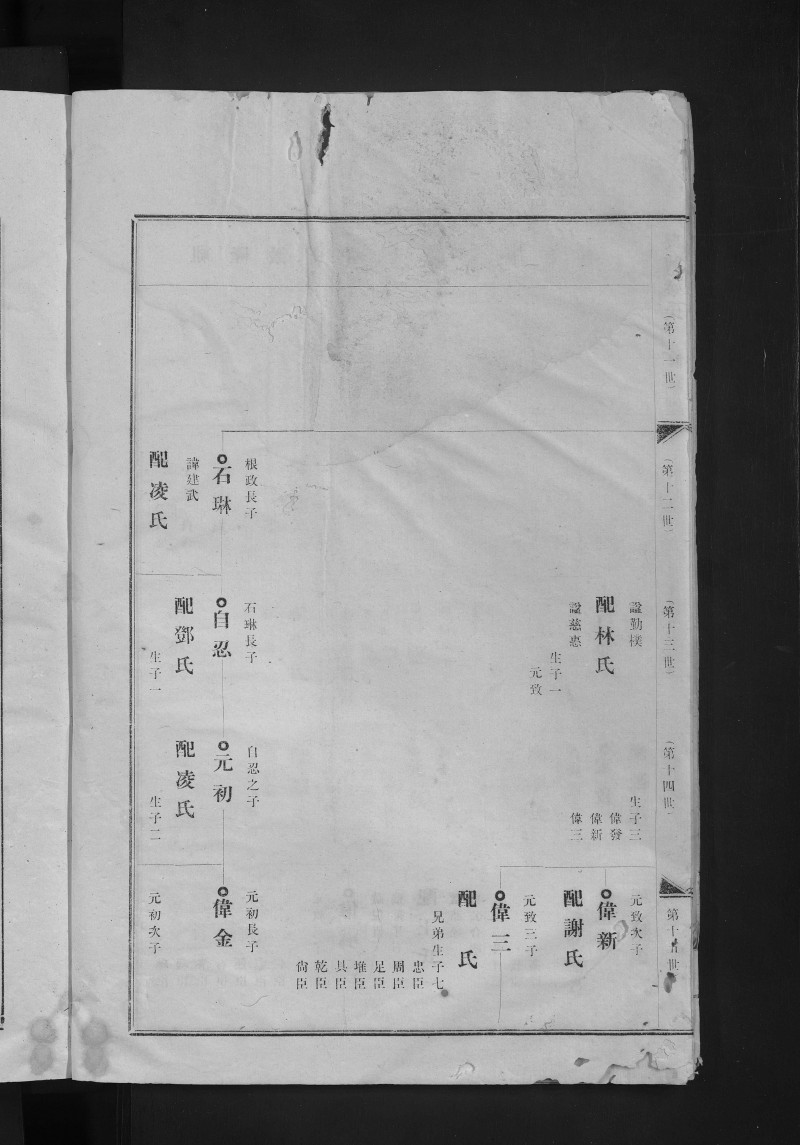 (第十一世)
(第十二世)
(第十三世)
(第十四世)
第十五世
諡勤樸
配林氏
諡慈惠
生子一
元致
生子三
偉發
偉新
偉三
元致次子
偉新
配謝氏
元致三子
偉三
配 氏
兄弟生子七
忠臣
周臣
足臣
堆臣
具臣
乾臣
尙臣
根政長子
石琳
諱建武
配凌氏
石琳長子
自忍
配鄧氏
生子一
自忍之子
元初
配凌氏
生子二
元初長子
偉金
元初次子